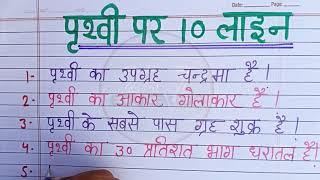 Date: Page:
पृथ्वी पर १० लाइन
1- पृथ्वी का उपग्रह चन्द्रमा है।
2. पृथ्वी का आकार गोलाकार हैं।
3. पृथ्वी के सबसे पास ग्रह शुक्र है।
4. पृथ्वी का 30 प्रतिशत भाग धरातल हैं।
5.